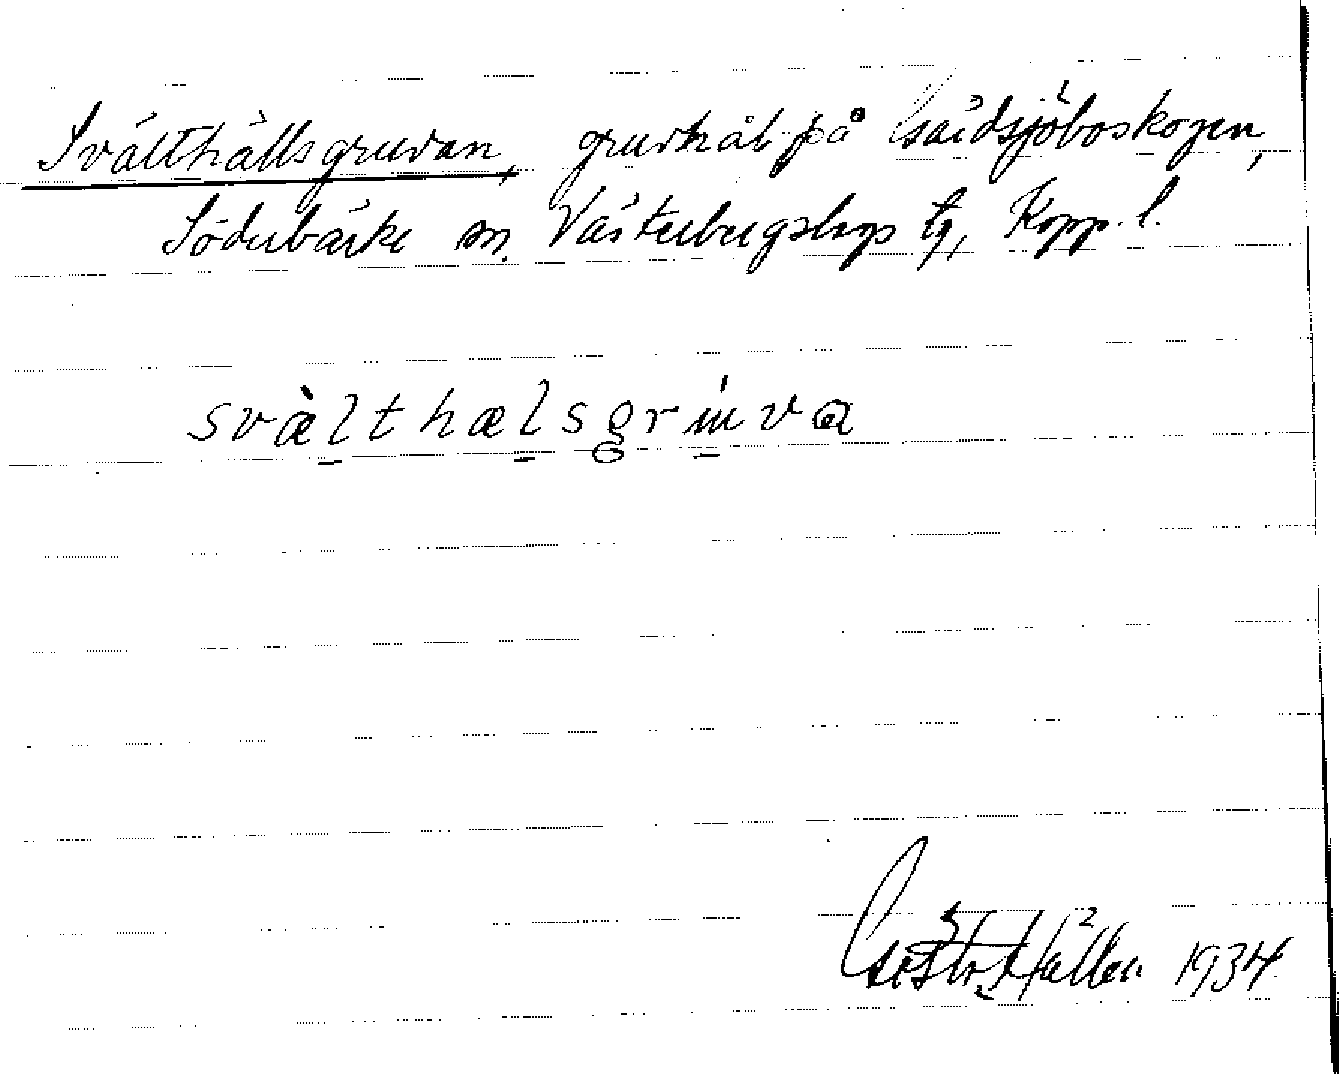 Svälthällsgruvan, gruvhål på Gäddsjöboskogen,
Söderbärke sn. Västerbergslags tg, Kopp. l.
svæ̀lthælsgrɯ́va
Gösta Hallén 1934